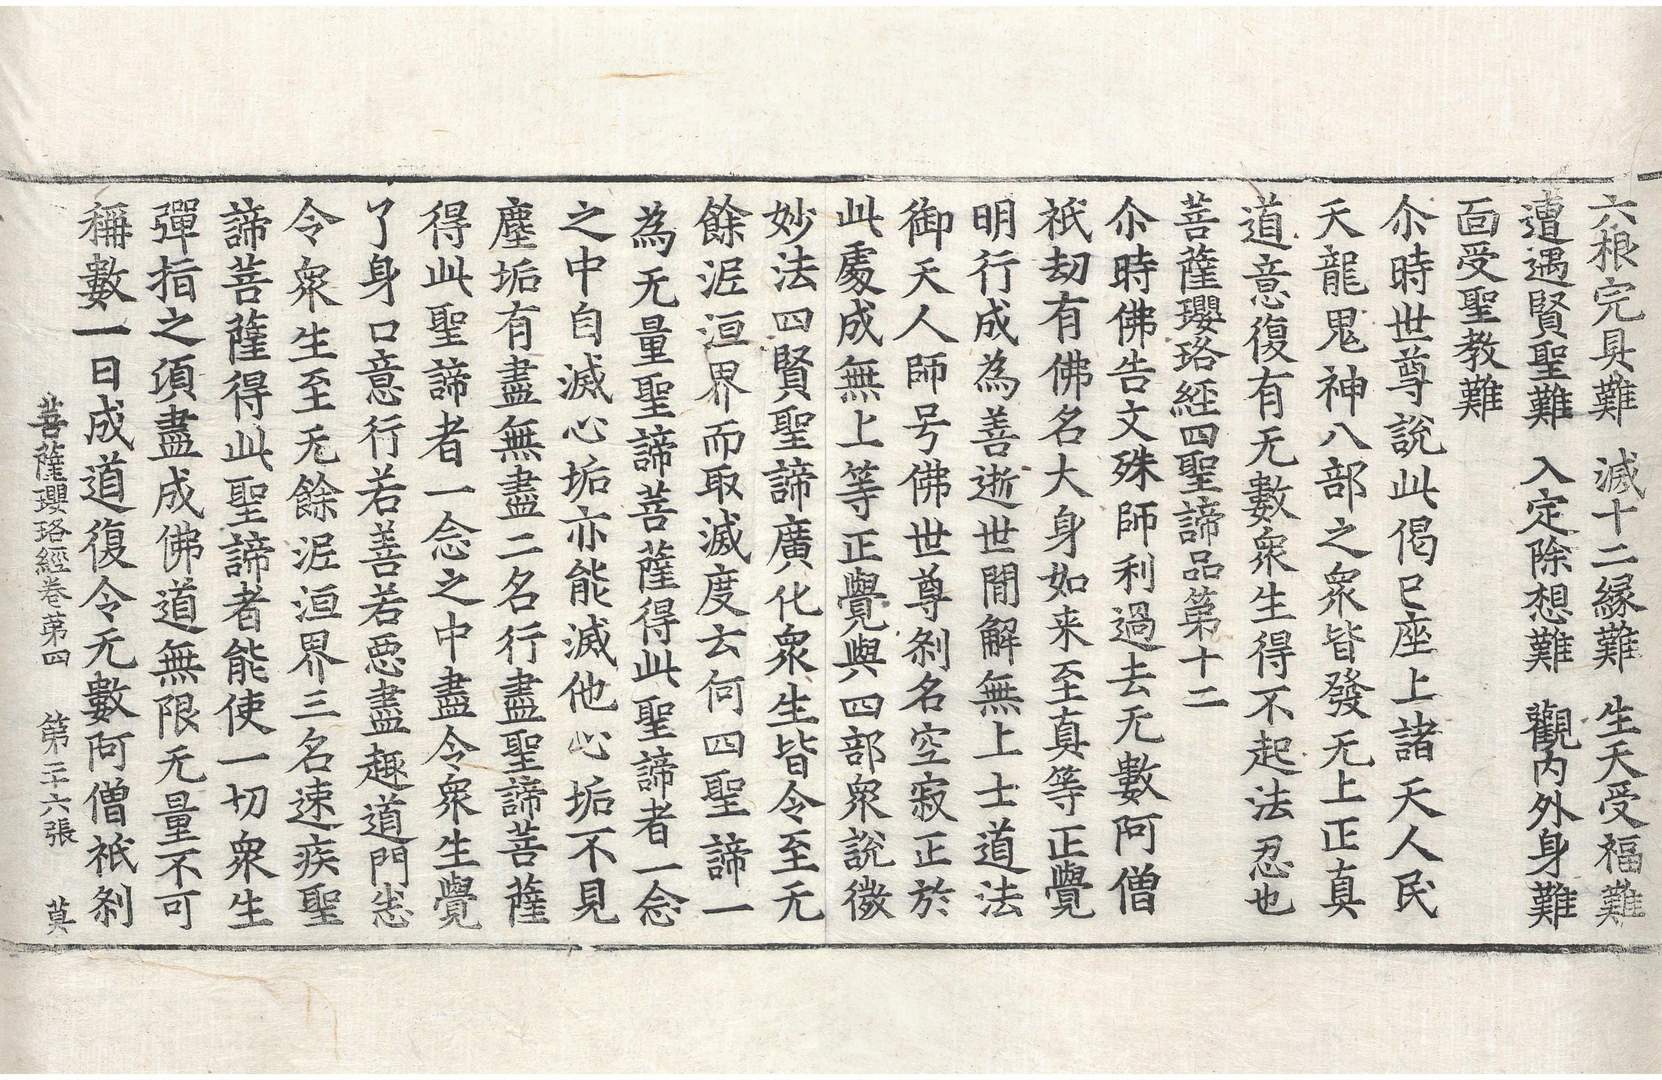 六根完具難　滅十二縁難　生天受福難
遭遇賢聖難　入定除想難　觀內外身難
面受聖教難
尒時世尊說此偈已座上諸天人民
天龍鬼神八部之衆皆發无上正真
道意復有无數衆生得不起法忍也
菩薩瓔珞經四聖諦品第十二
尒時佛告文殊師利過去无數阿僧
祇劫有佛名大身如来至真等正覺
明行成為善逝世閒解無上士道法
御天人師号佛世尊剎名空寂正於
此處成無上等正覺與四部衆說微
妙法四賢聖諦廣化衆生皆令至无
餘泥洹界而取滅度云何四聖諦一
為无量聖諦菩薩得此聖諦者一念
之中自滅心垢亦能滅他心垢不見
塵垢有盡無盡二名行盡聖諦菩薩
得此聖諦者一念之中盡令衆生覺
了身口意行若善若惡盡趣道門悉
令衆生至无餘泥洹界三名速疾聖
諦菩薩得此聖諦者能使一切衆生
彈指之須盡成佛道無限无量不可
稱數一日成道復令无數阿僧祇剎
菩薩瓔珞經卷第四　第二十六張　莫